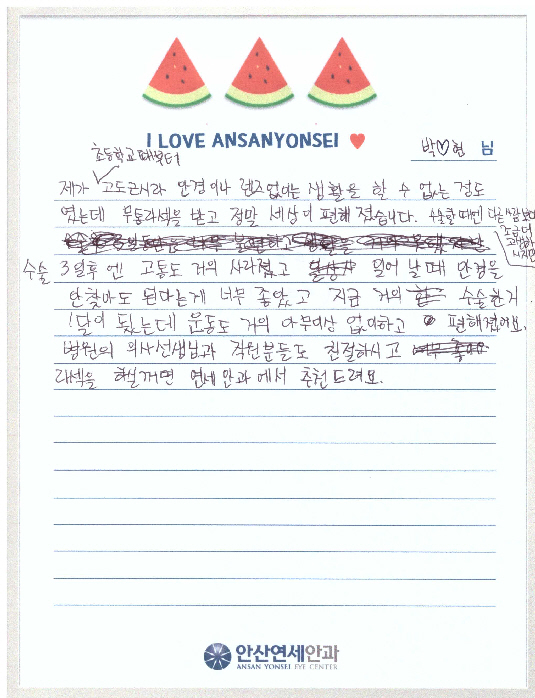 I LOVE ANSANYONSEI
박♡현 님
초등학교때부터
제가 고도근시라 안경이나 렌즈없이는 생활을 할 수 없는 정도
였는데 무통라섹을 받고 정말 세상이 편해졌습니다. 수술할때엔 다른사람보다
조금더
수술 3일후엔 고통도 거의 사라졌고 일어날때 안경을
안찾아도 된다는게 너무 좋았고 지금 거의 수술한지
1달이 됐는데 운동도 거의 아무이상 없이하고 편해졌어요.
병원의 의사선생님과 직원분들도 친절하시고
라섹을 하실꺼면 연세안과에서 추천드려요.
안산연세안과
ANSAN YONSEI EYE CENTER